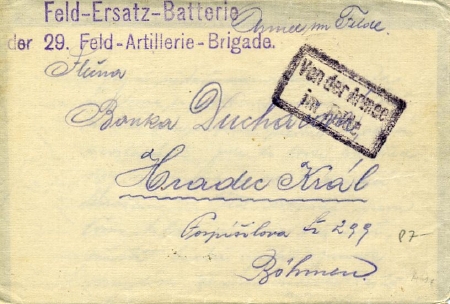 Feld-Ersatz-Batterie
der 29. Feld-Artillerie-Brigade.
im Felde.
Von der Armee
im Felde
Slečna
Hradec Král
Pospíšilova č 299
Böhmen.
87-